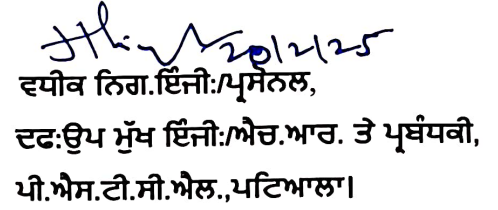 20/2/25
ਵਧੀਕ ਨਿਗ.ਇੰਜੀ:/ਪ੍ਰਸੋਨਲ,
ਦਫ:ਉਪ ਮੁੱਖ ਇੰਜੀ:/ਐਚ.ਆਰ. ਤੇ ਪ੍ਰਬੰਧਕੀ,
ਪੀ.ਐਸ.ਟੀ.ਸੀ.ਐਲ.,ਪਟਿਆਲਾ।